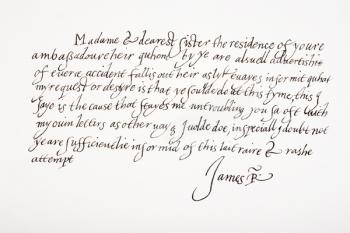 Madame & dearest sister the residence of youre
ambassadoure heir quhom by ye are alsuell advertishit
of everie accident fallis out heir as lykeuayes informit quhat
my request or desyre is that ye soulde do at this tyme, this I
saye is the cause that stayes me untroubling you sa oft with
my ouin letirs as other uayes I udde doe, in specially I doubt not
ye are sufficientlie informid of this last raire & rashe
attempt
James R